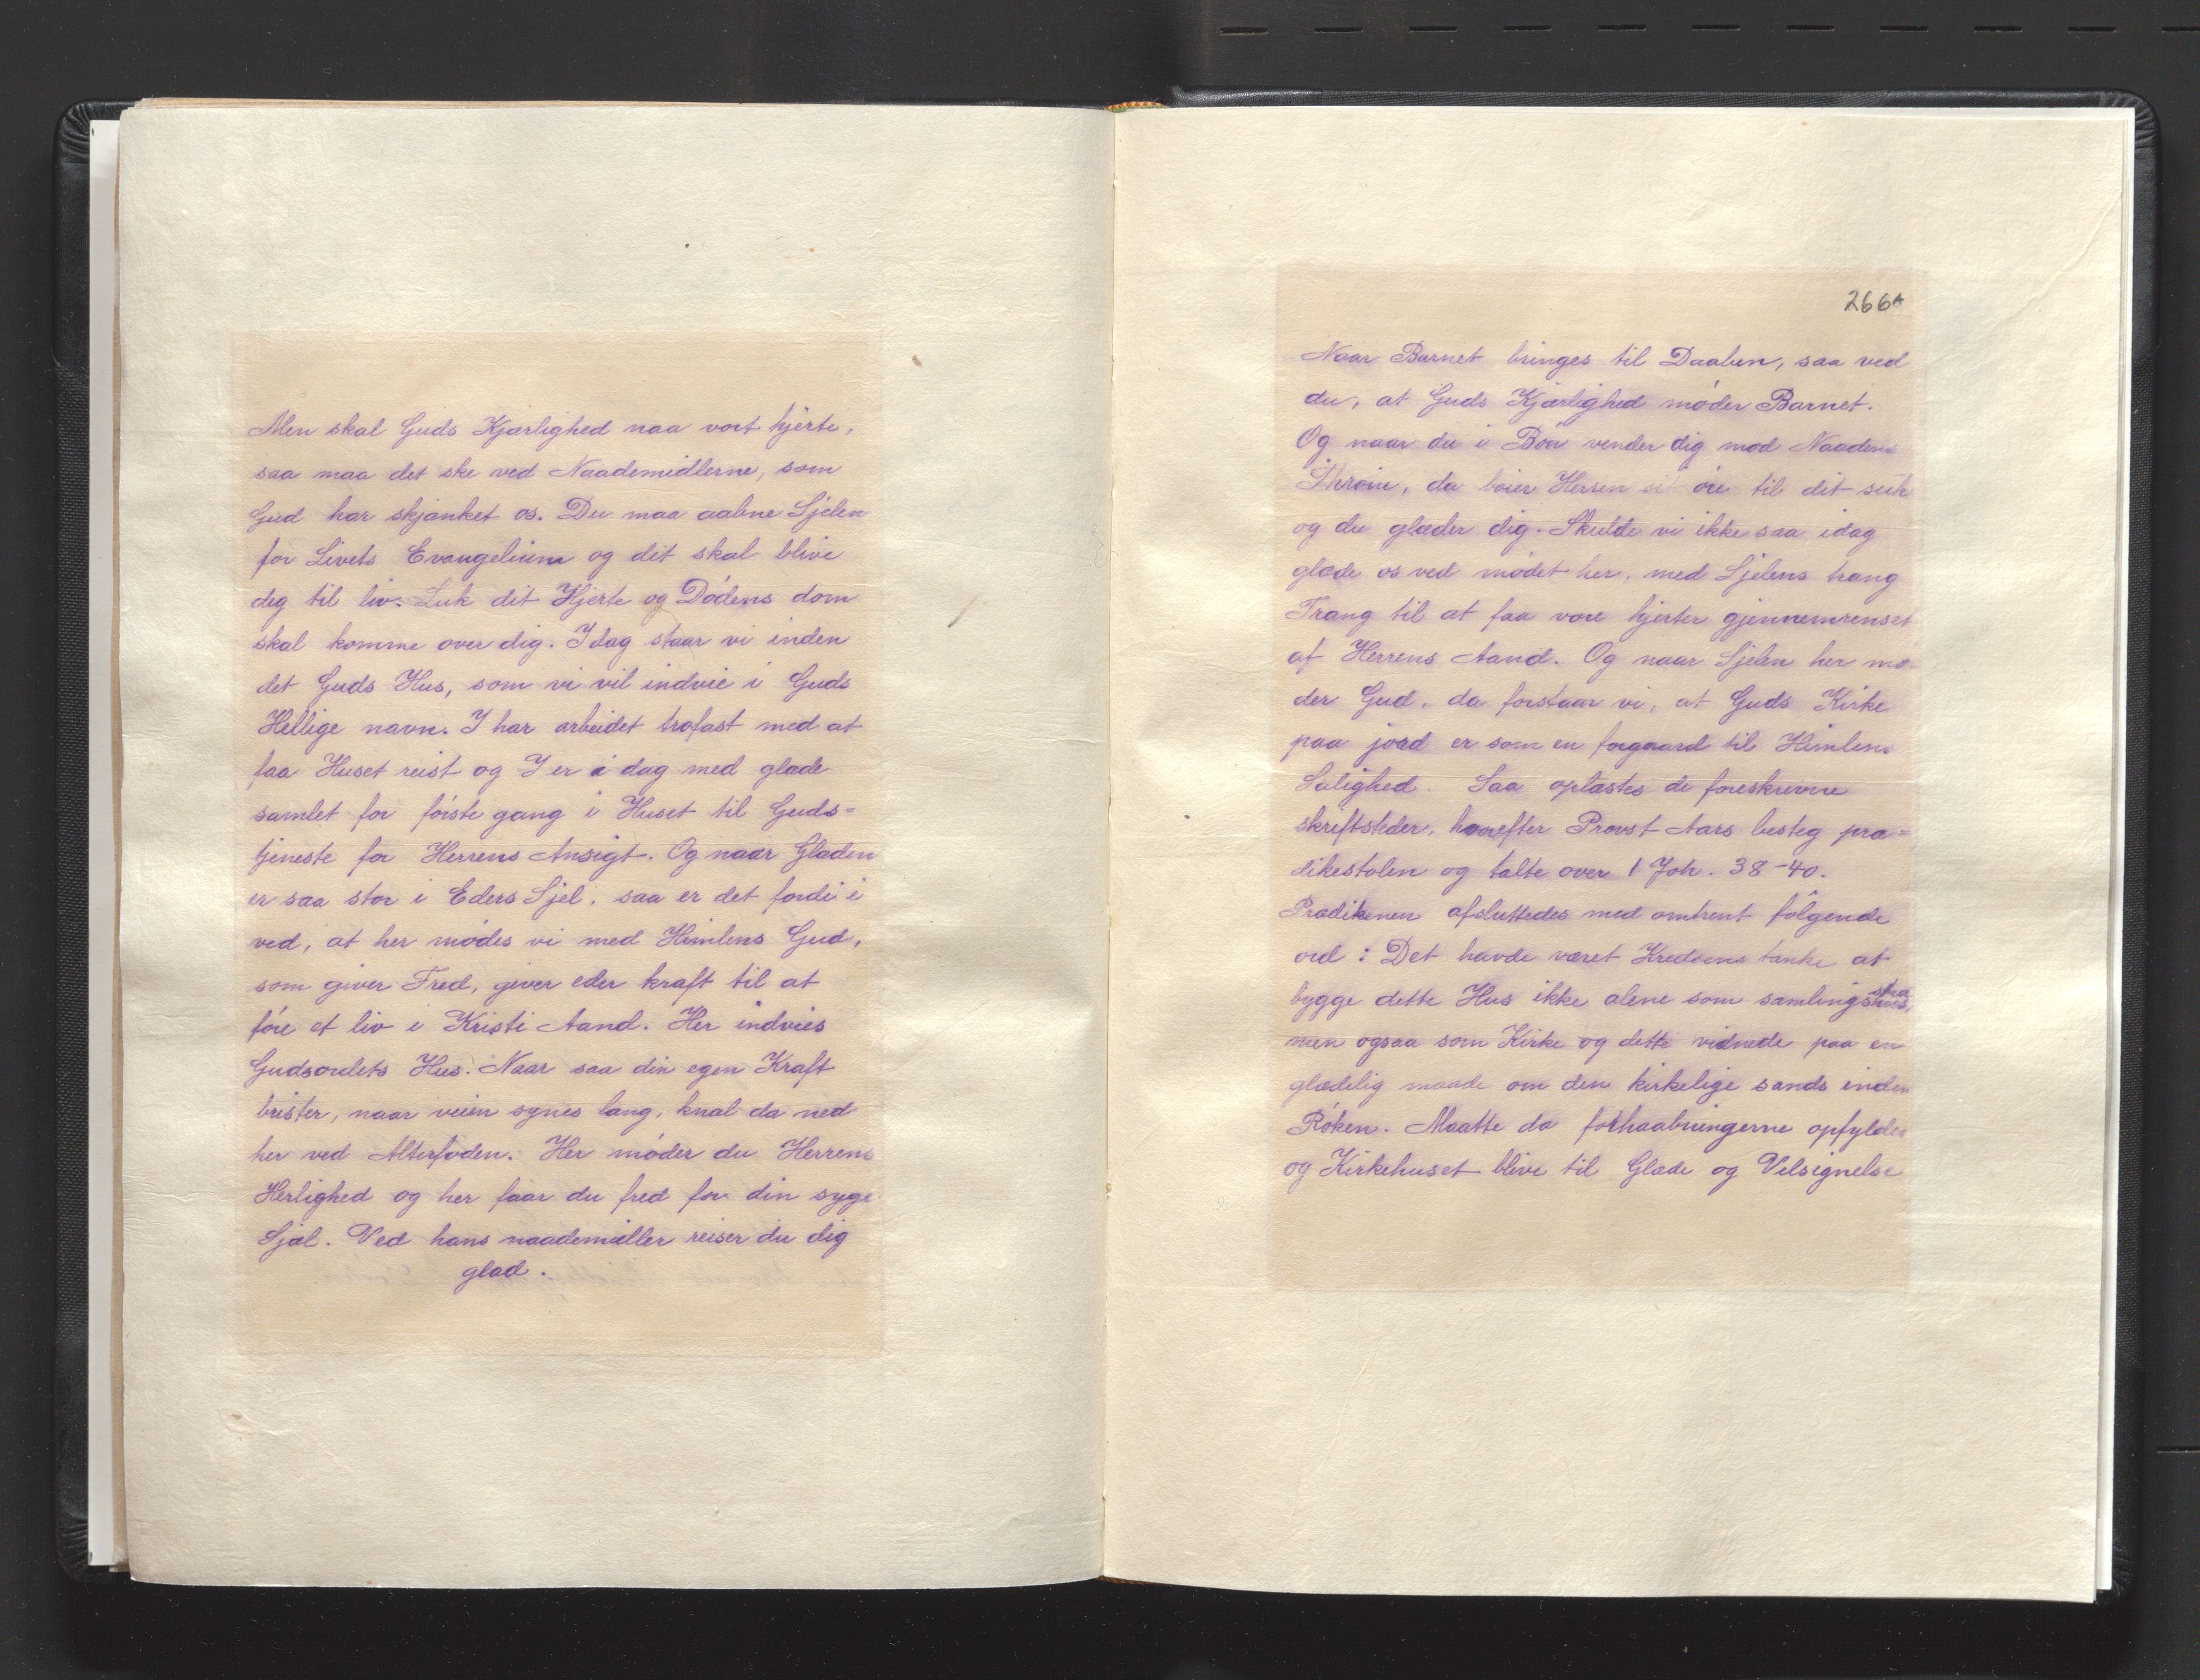 Men skal Guds Kjærlighed naa vort hjerte,
saa maa det ske ved Naademidlerne, som
Gud har skjænket os. Du maa aabne Sjelen
for Livets Evangelium og dit skal blive
dig til liv. Luk dit Hjerte og Dødens dom
skal komme over dig. Idag staar vi inden
det Guds Hus, som vi vil indvie i Guds
Hellige navn. I har arbeidet trofast med at
faa Huset reist og I er i dag med glæde
samlet for første gang i Huset til Guds=
tjeneste for Herrens Ansigt. Og naar Glæden
er saa stor i Eders Sjel, saa er det fordi i
ved, at her mødes vi med Himlens Gud,
som giver Fred, giver eder kraft til at
føre et liv i Kristi Aand. Her indvies
Gudsordets Hus. Naar saa din egen Kraft
brister, naar veien synes lang, knæl da ned
her ved Alterfoden. Her møder du Herrens
Herlighed og her faar du fred for din syge
Sjæl. Ved hans naademidler reiser du dig
glad.
266A
Naar Barnet bringes til Daaben, saa ved
du, at Guds Kjærlighed møder Barnet.
Og naar du i Bøn vender dig mod Naadens
Throne, da bøier Herren sit øre til dit suk
og du glæder dig. Skulde vi ikke saa idag
glæde os ved mødet her, med Sjelens trang
Trang til at faa vore hjerter gjennemrenset
af Herrens Aand. Og naar Sjelen her mø-
der Gud, da forstaar vi, at Guds Kirke
paa jord er som en forgaard til Himlens
Salighed. Saa oplæstes de foreskrevne
skriftsteder, hvorefter Provst Aars besteg præ=
dikestolen og talte over 1 Joh. 38-40.
Prædikenen afsluttedes med omtrent følgende
ord: Det havde været Kredsens tanke at
bygge dette Hus ikke alene som samlings
men ogsaa som Kirke og dette vidnede paa en
glædelig maade om den kirkelige sands inden
Røken. Maatte da forhaabningerne opfyldes
og Kirkehuset blive til Glæde og Velsignelse